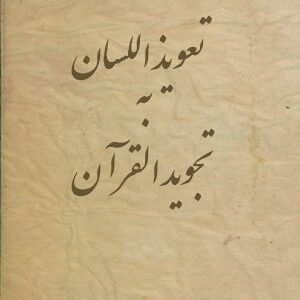 تعویذ اللسان
به
تجوید القرآن